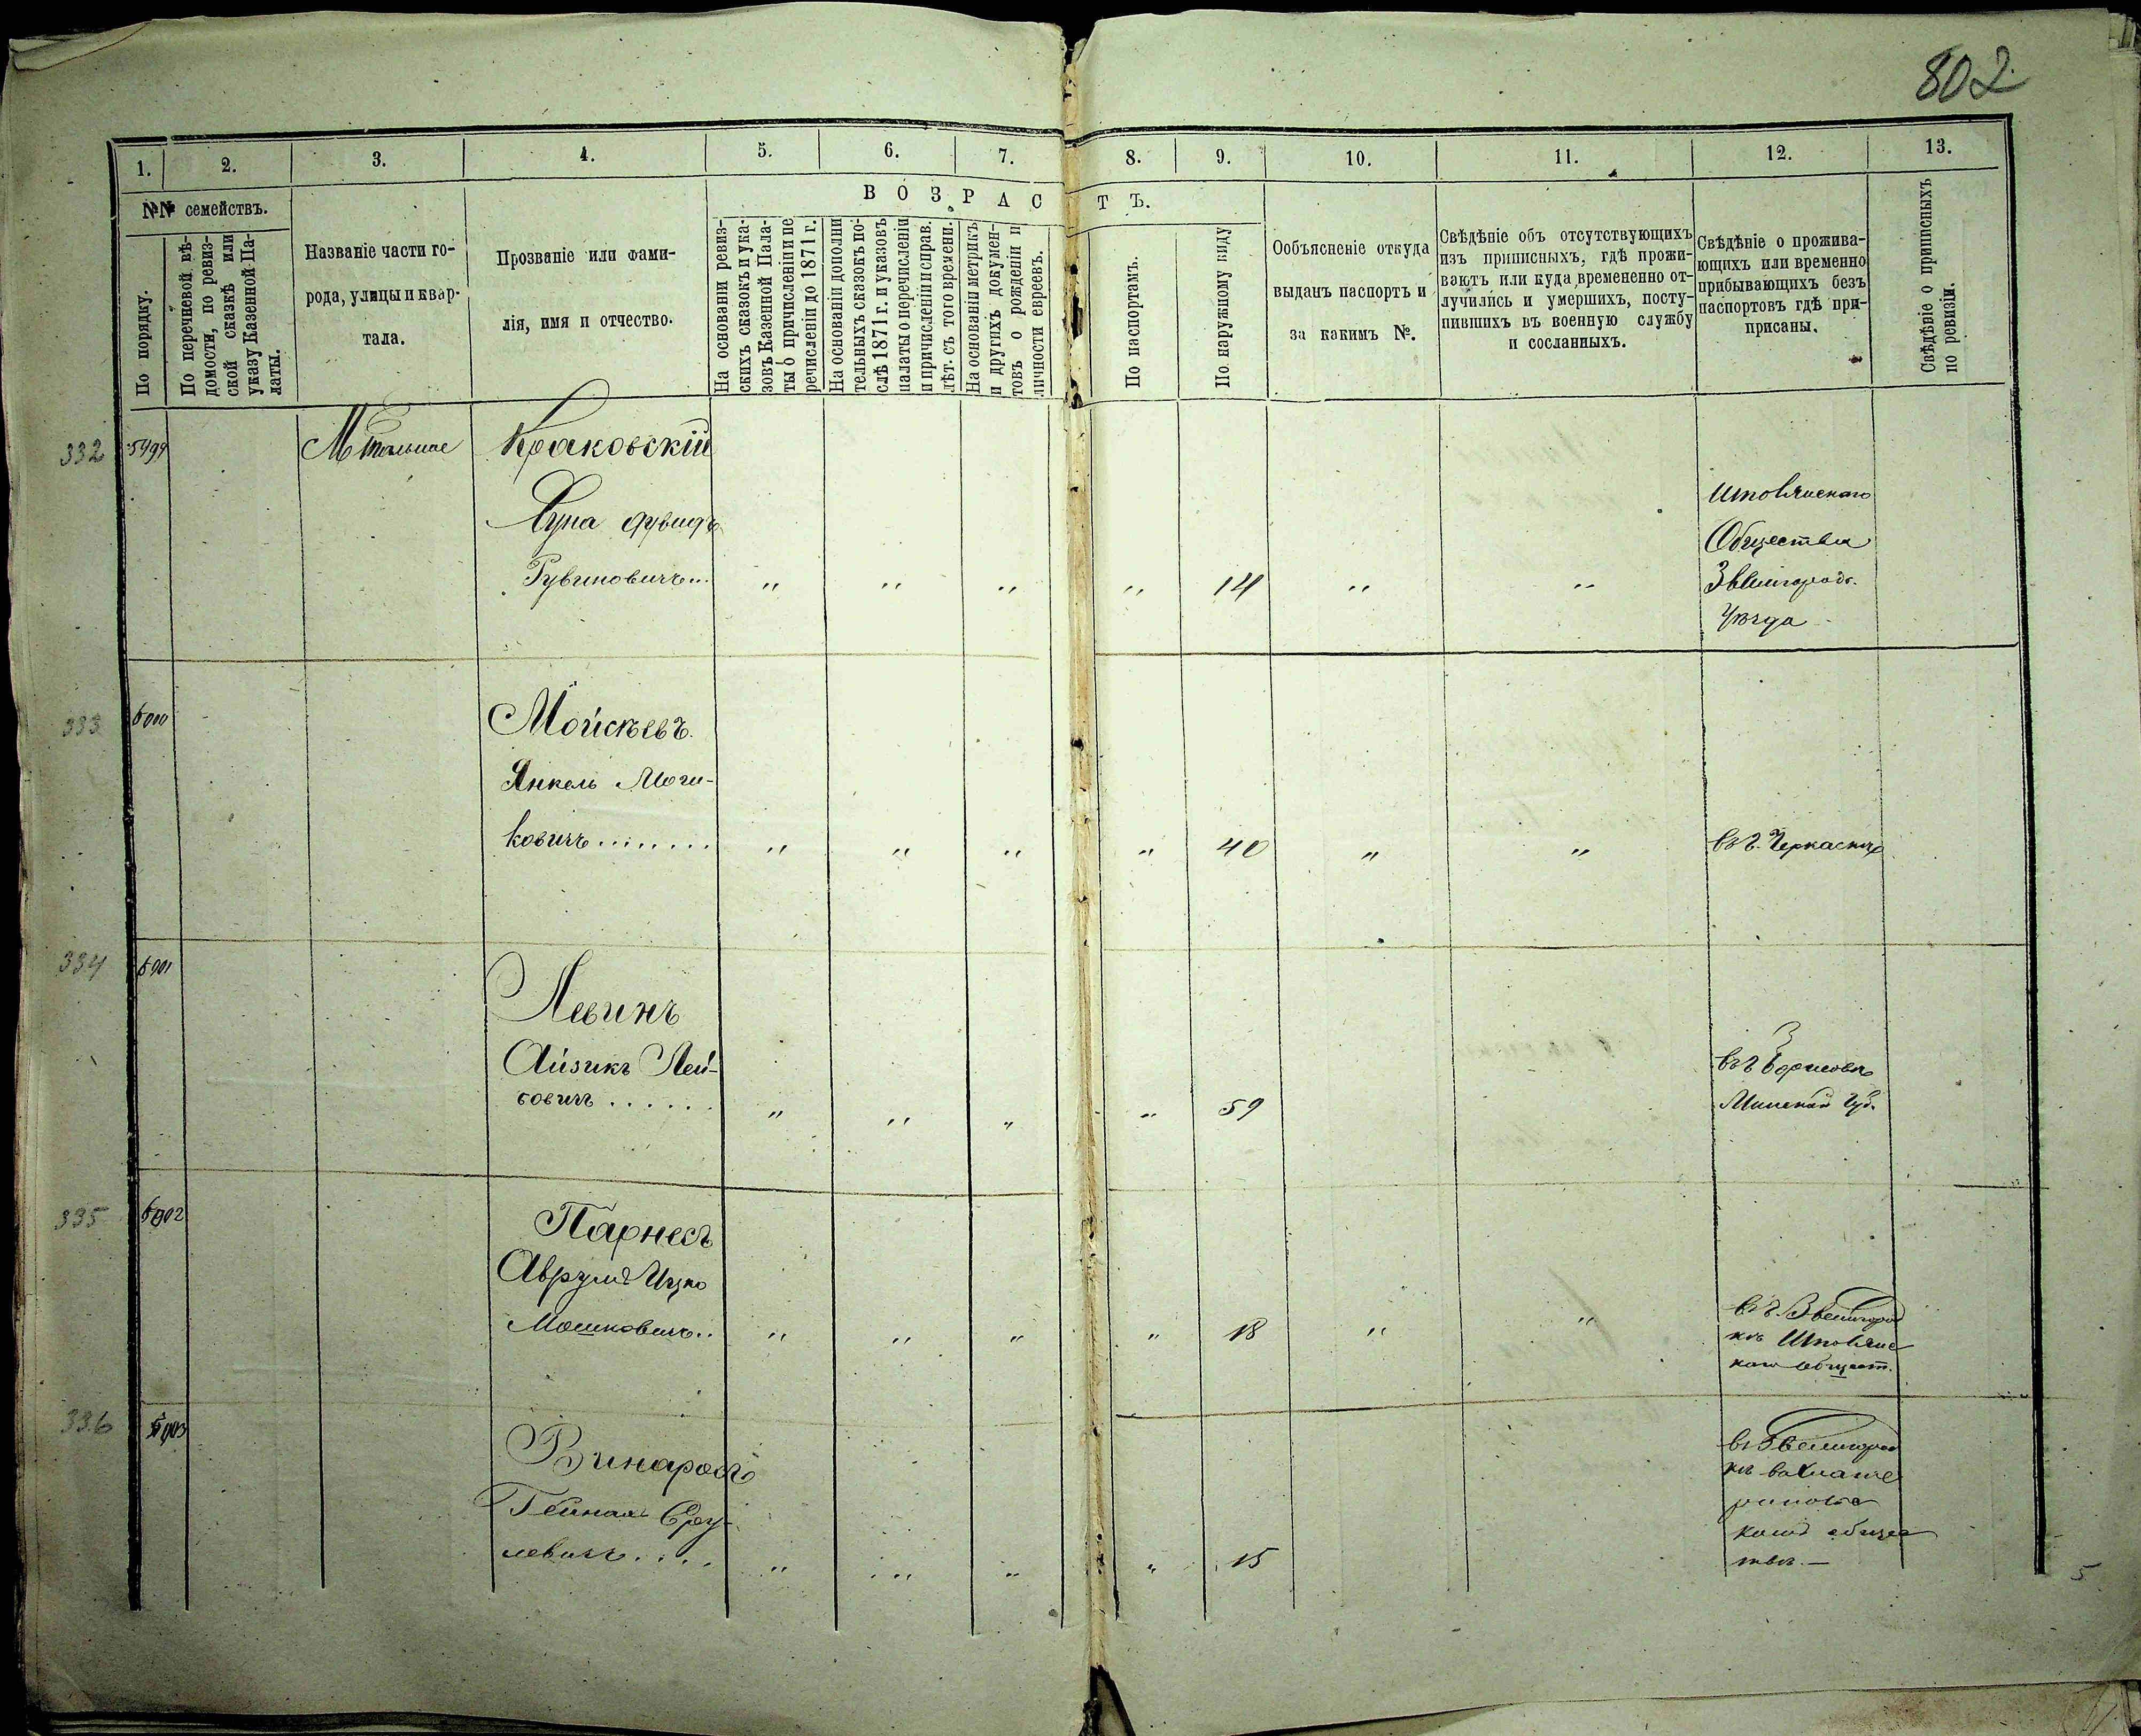 802
1. 2. 3. 4. 5. 6. 7. 8. 9. 10. 11. 12. 13.
№№ семействъ.
По порядку.
По перечневой вѣ-
домости, по ревиз-
ской сказкѣ или
указу Казенной Па-
латы.
Названіе части го-
рода, улицы и квар-
тала.
Прозваніе или Фами-
лія, имя и отчество.
ВОЗРАСТЪ.
На основаніи ревиз-
скихъ сказокъ и ука-
зовъ Казенной Пала-
ты о причисленіи и пе
речисленіи до 1871 г.
На основаніи дополни
тельныхъ сказокъ по-
слѣ 1871 г. и указовъ
палаты о перечисленіи
и причисленіи и справ.
лѣт. съ того времени.
На основаніи метрикъ
и другихъ докумен-
товъ о рожденіи и
личности евреевъ.
По паспортамъ.
По наружному виду
Ообъясненіе откуда
выданъ паспортъ и
за какимъ №.
Свѣдѣніе объ отсутствующихъ
изъ приписныхъ, гдѣ прожи-
ваютъ или куда временно от-
лучились и умершихъ, посту-
пившихъ въ военную службу
и сосланныхъ.
Свѣдѣніе о прожива-
ющихъ или временно
прибывающихъ безъ
паспортовъ гдѣ при-
присаны.
Свѣдѣніе о приписныхъ
по ревизіи.
332 М Тальное Краковскій
Рувиновичъ „ „ „ „ 14 „ „
Шполянскаго
Общества
Звенигород.
Уѣзда
333 6000 Мойсѣевъ.
Янкель
ковичъ........ „ „ „ „ 40 „ „ въ г. Черкасахъ
334 6001 Левинъ
Айзикъ Лей-
бовичъ ...... „ „ „ „ 59
въ г Борисовѣ
Минской Губ.
335 6002 Парнесъ
Аврумъ Ицко
Мошковичъ.. „ „ „ „ 18 „ „
въ г. Звенигород
кѣ Шполянс
каго общест.
336 6003 Винаровъ
Сру-
левичъ.... „ „ „ „ 15
въ Звенигород
кѣ
каго общес
твѣ.—
5